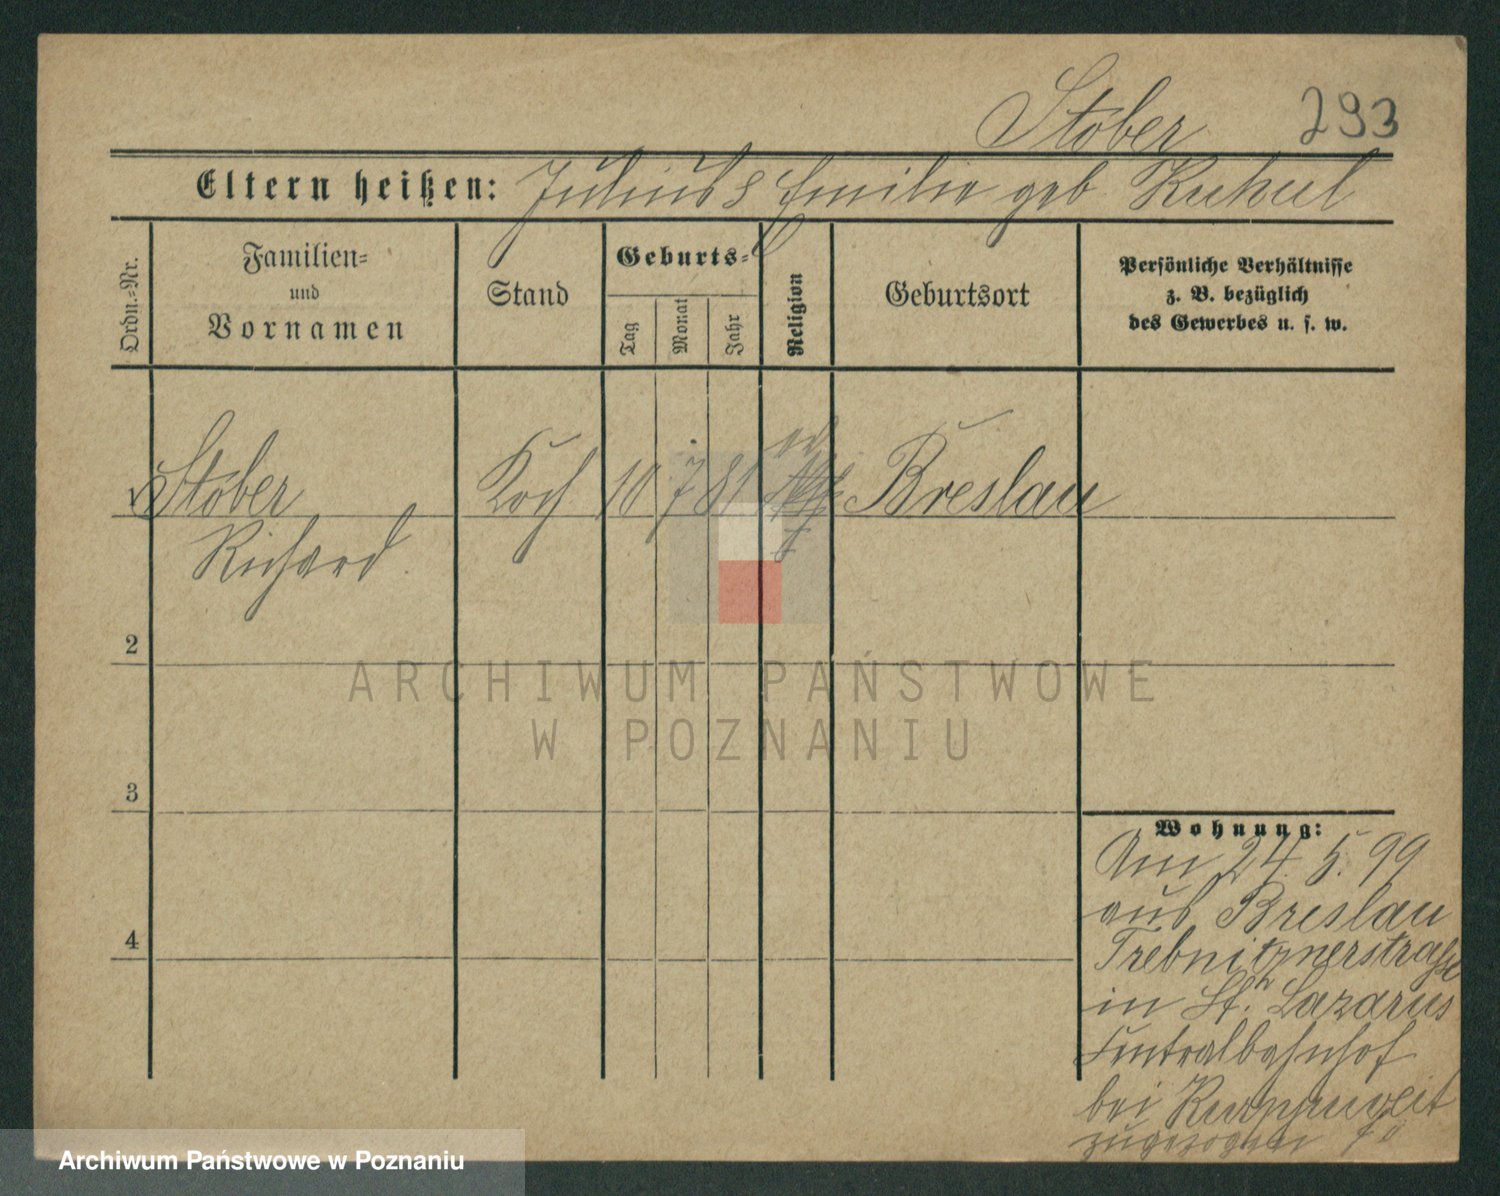 Stober 293
Eltern heißen: Julius & Emilie geb
Ordn.-Nr.
Familien-
und
Vornamen
Stand
Geburts-
Tag
Monat
Jahr
Religion
Geburtsort
Persönliche Verhältnisse
z. B. bezüglich
des Gewerbes u. s. w.
1 Stober Koch 10 7 81 Breslau
Richard
2
3
4
ARCHIWUM PAŃSTWOWE
W POZNANIU
Wohnung:
Am 24. 5. 99
aus Breslau
Trebnitznerstraße
in St. Lazarus
Centralbahnhof
bei
zugezogen
Archiwum Państwowe w Poznaniu